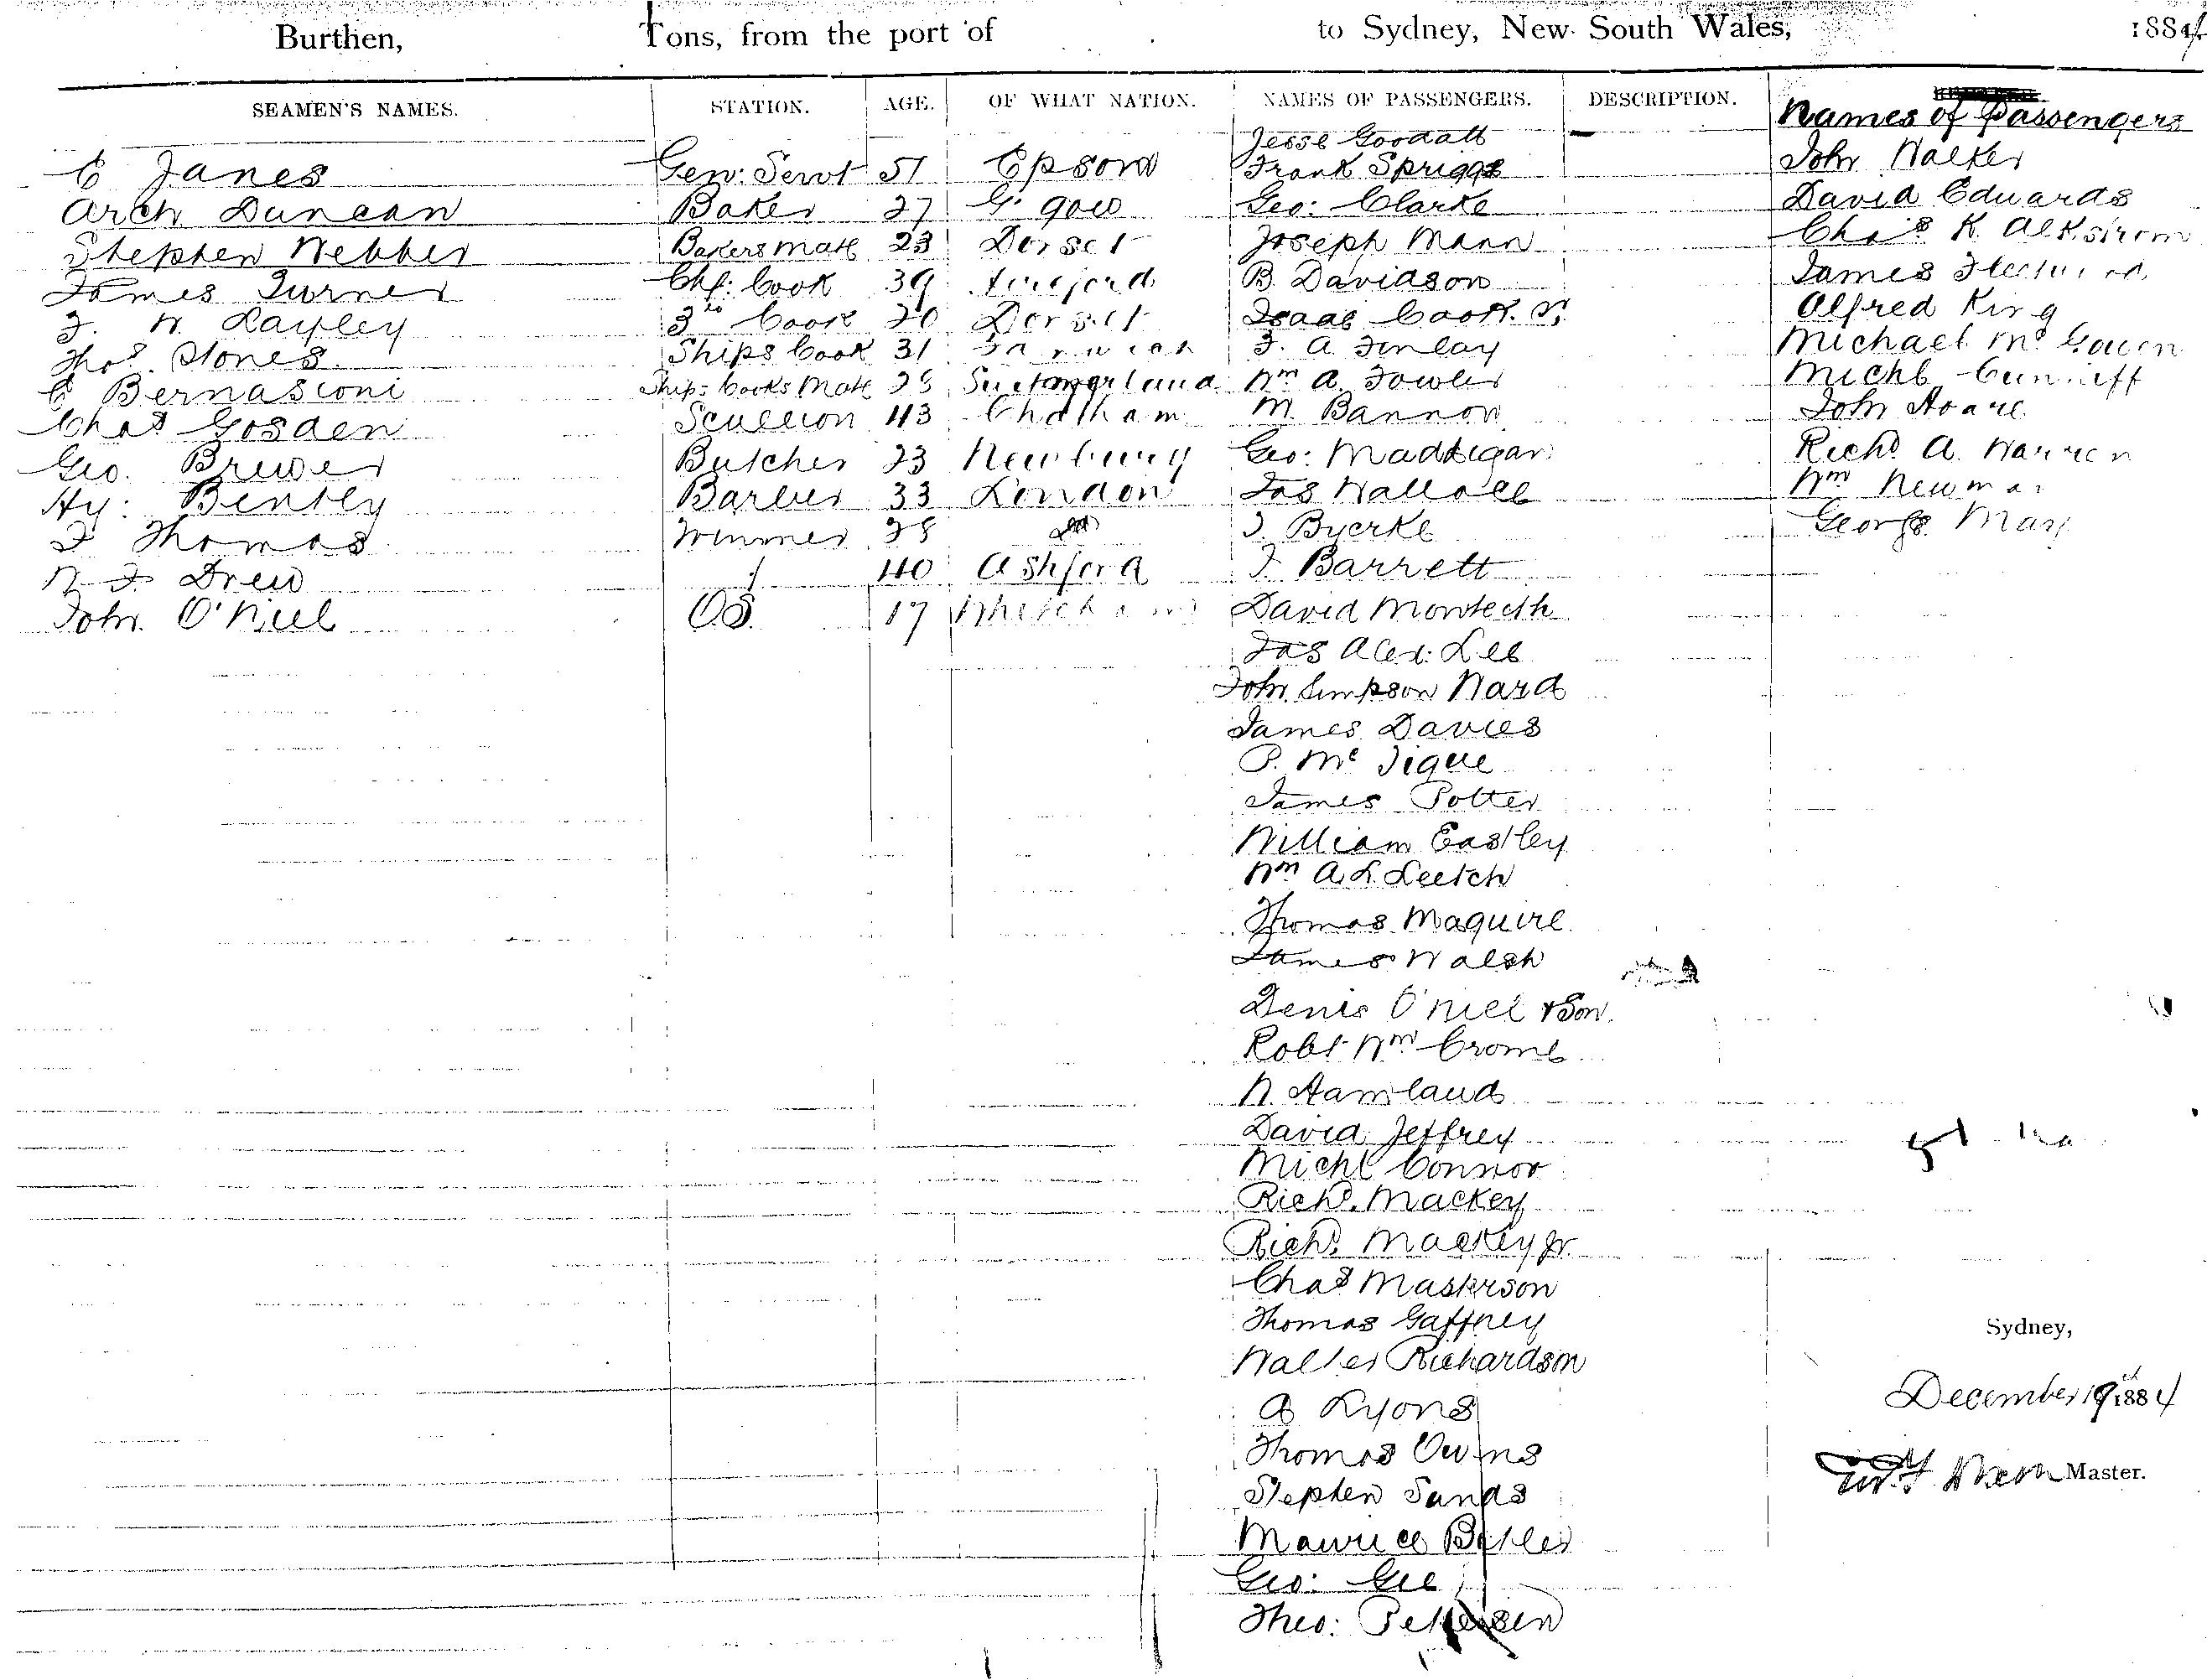 Burthen, Tons, from the port of to Sydney, New South Wales, 1884
SEAMEN'S NAMES. STATION. AGE. OF WHAT NATION. NAMES OF PASSENGERS. DESCRIPTION. Names of Passengers
Jesse Goodall
C Janes Gen: Servt 51 Epsom Frank Spriggs John Walker
Arch Duncan Baker 27 G. gow Geo: Clarke David Edwards
Stephen Webber Bakers Mate 23 Dorset Joseph Mann Chas K.
James Turner Chf: Cook 39 B. Davidson James
F. W. Layley 3rd Cook 20 Dorset Isaac Cook Alfred King
Thos. Stones Ships Cook 31 F. A. Finlay Michael McGowen
C Bernasconi Ships Cooks Mate Wm A. Fowler Michl Cunniff
Chas Gosden Scullion 43 Chatham M. Bannon John Hoare
Geo. Brewer Butcher 23 Newbury Geo: Maddigan Richd A. Warren
Hy: Bentley Barber 33 London Jas Wallace Wm Newman
F Thomas Trimmer 28 do J. Byerke George
W F Drew 40 Ashford J Barrett
John O'Niel OS 17 David Monteith
Jas Alex: Lee
John Simpson Ward
James Davies
P. Mc Tigue
James Potter
William Eastley
Wm A. L. Leetch
Thomas Maguire
James Walsh
Denis O'Niel & Son.
Robt Wm Cromb
David Jeffrey
Michl Connor
Richd. Mackey
Richd. Mackey Jr.
Chas Masterson
Thomas Gaffney
Sydney,
Walter Richardson
December 19th 1884
A Lyons
Thomas Owens
Master.
Stephen Sands
Maurice Butler
Geo: Gee
Theo: Pettersen